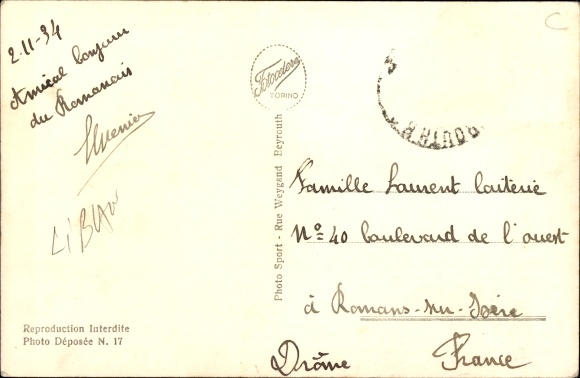 2-11-34
Amical bonjour
du Romanais
LIBAN
Fotocelere
TORINO
Photo Sport - Rue Weygand Beyrouth
Famille Laurent laiterie
N° 40 boulevard de l'ouest
à Romans-sur-Isère
Drôme France
Reproduction Interdite
Photo Déposée N. 17
C